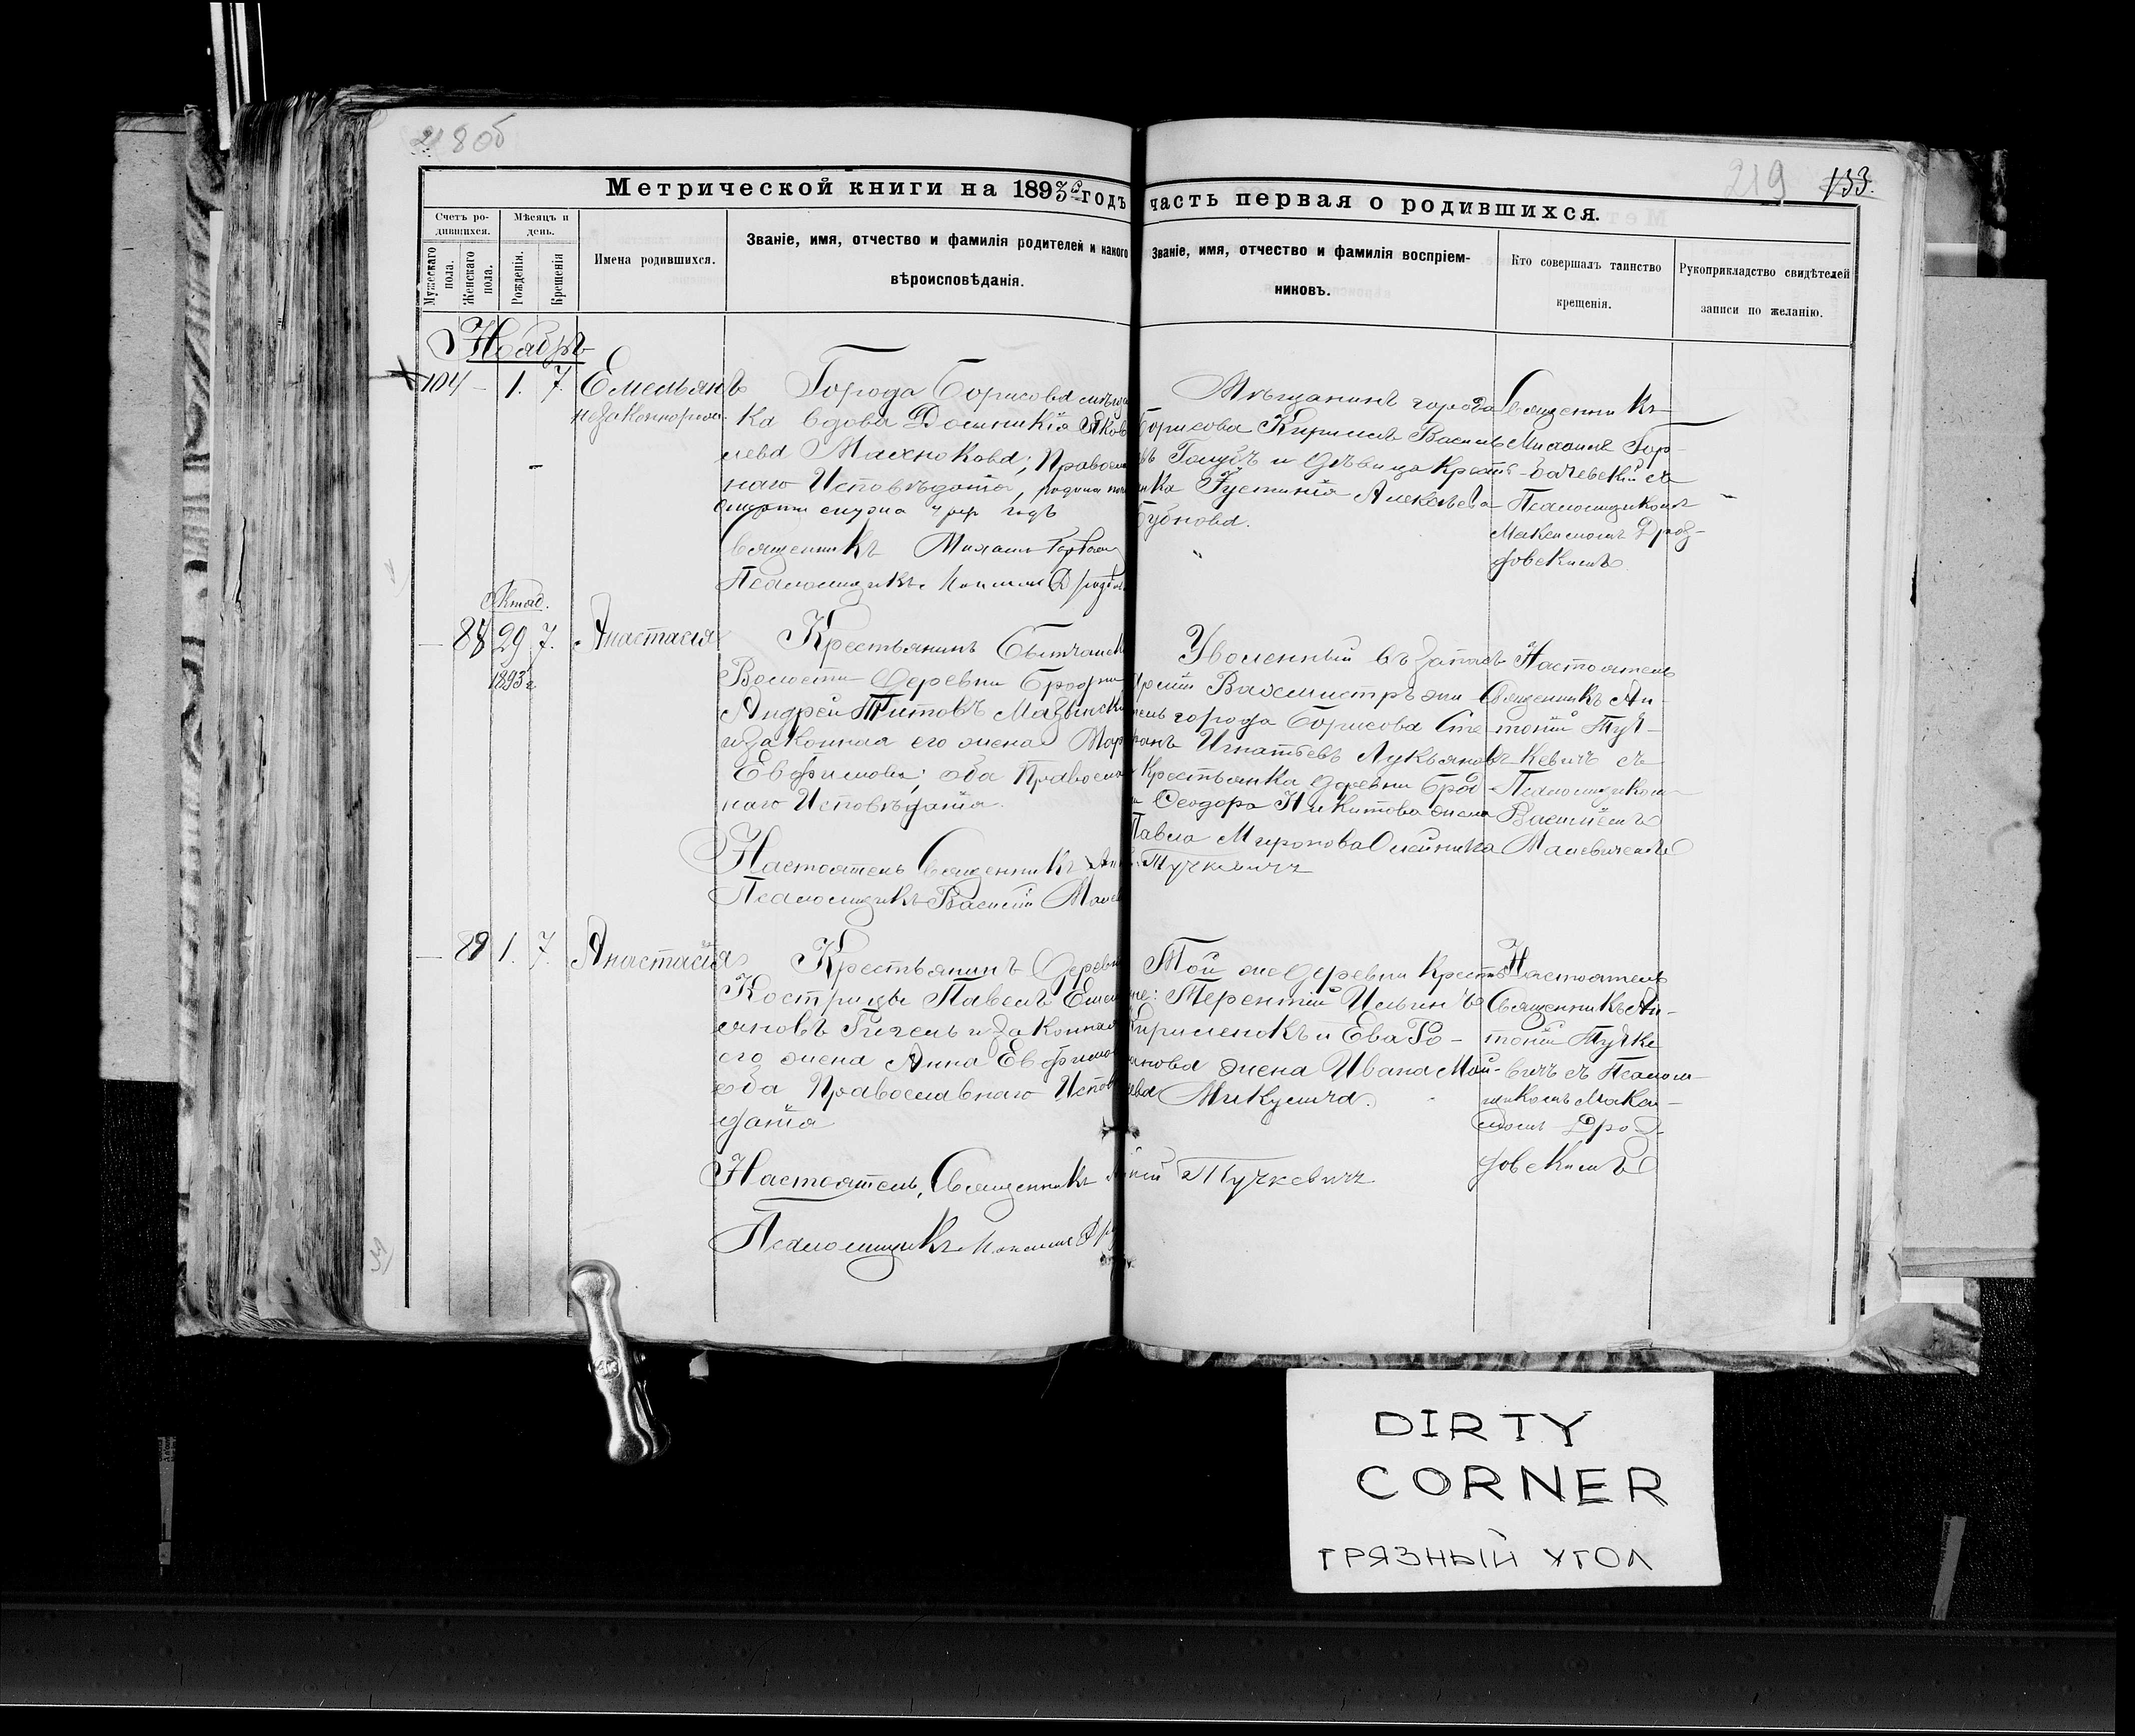 218об
219 133.
Метрической книги на 1893й годъ часть первая о родившихся.
Счетъ родившихся.
Мужескаго пола.
Женскаго пола.
Мѣсяцъ и день.
Рожденія.
Крещенія
Имена родившихся.
Званіе, имя, отчество и фамилія родителей и какого
вѣроисповѣданія.
Званіе, имя, отчество и фамилія воспріем-
никовъ.
Кто совершалъ таинство
крещенія.
Рукоприкладство свидѣтелей
записи по желанію.
Ноябрь
104 - 1. 7. Емельянъ
незаконнорож.
Города Борисова мѣща
ка вдова Яков
лева Махнокова; Правосла
наго Исповѣданія, родила
смерти мужа годъ
Священникъ Михаилъ
Псаломщикъ
Мѣщанинъ города
Борисова Кириллъ Василь
въ Голубъ и дѣвица Крест
нка Іустинія Алексѣева
Бубнова.
Священникъ
Михаилъ Гор-
бачевскій съ
Псаломщикомъ
Максимомъ Дроз-
довскимъ
Октяб.
- 88 29 7. Анастасія
1893 г.
Крестьянинъ
Волости Деревни
Андрей Титовъ
и законная его жена Мар
Евфимова; оба Правосла
наго Исповѣданія.
Настоятель Священникъ Ан
Псаломщикъ Василій Мал
Уволенный въ запасъ
Вахмистръ жи
тель города Борисова Сте
панъ Игнатьевъ Лукьяновъ
Крестьянка деревни Брод
Ѳеодора Никитова жена
Павла Миронова Олейника
Тучкевичъ
Настоятель
Священникъ Ан-
тоній Туч-
кевичъ съ
Псаломщикомъ
Василіемъ
Малевичемъ
- 89 1. 7. Анастасія
Крестьянинъ Деревн
Кострицы Павелъ Емел
яновъ Гигель и законная
его жена Анна Евфимо
оба Православнаго Исповѣ
данія
Настоятель, Священникъ
Псаломщикъ
Той же деревни Крестья
не: Терентій Ильинъ
Кириленокъ и Ева Ро-
манова жена Ивана Мои-
ева Микулича.
ній Тучкевичъ
Настоятель
Священникъ Ан-
тоній Тучке
вичъ съ Псалом-
щикомъ Макси-
момъ Дроз-
довскимъ
DIRTY
CORNER
ГРЯЗНЫЙ УГОЛ